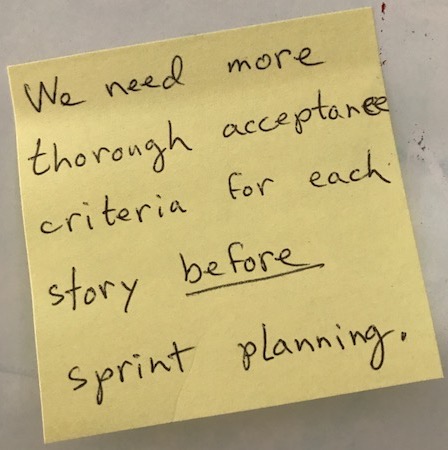 We need more
thorough acceptance
criteria for each
story before
sprint planning.